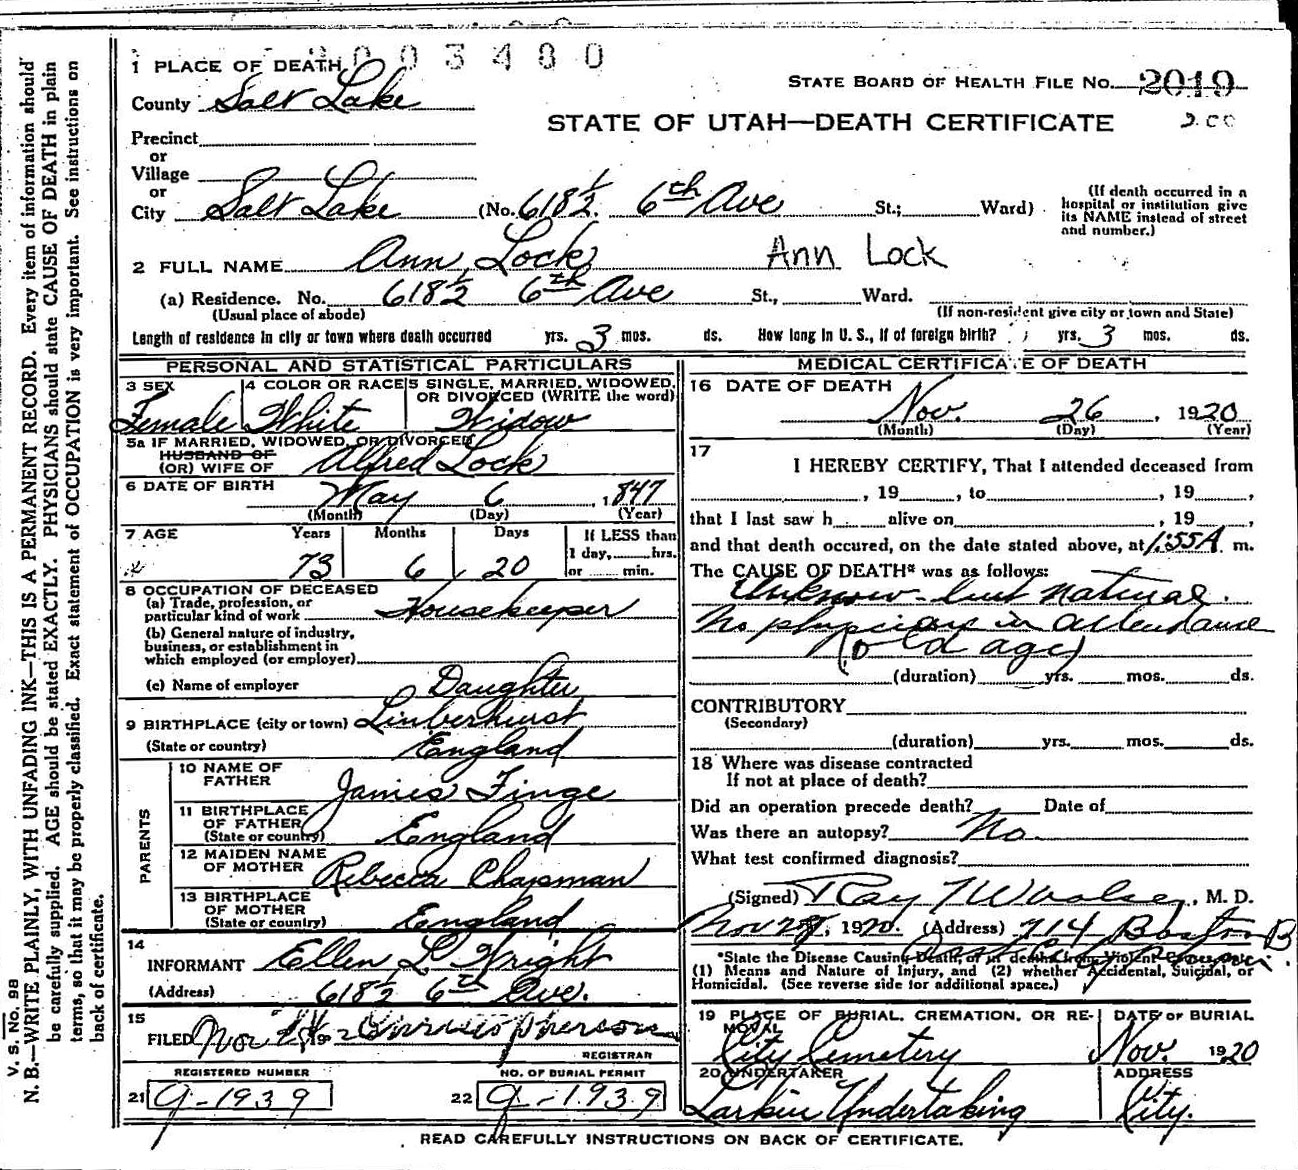 003480
1 PLACE OF DEATH
STATE BOARD OF HEALTH FILE No. 2019
County Salt Lake
STATE OF UTAH—DEATH CERTIFICATE
Precinct
or
Village
or
City Salt Lake (No. 618½ 6th Ave St.; Ward)
(If death occurred in a hospital or institution give its NAME instead of street and number.)
2 FULL NAME Ann Lock Ann Lock
(a) Residence. No. 618½ 6th Ave St., Ward.
(Usual place of abode) (If non-resident give city or town and State)
Length of residence in city or town where death occurred yrs. 3 mos. ds. How long in U. S., if of foreign birth? yrs. 3 mos. ds.
PERSONAL AND STATISTICAL PARTICULARS
3 SEX Female
4 COLOR OR RACE White
5 SINGLE, MARRIED, WIDOWED, OR DIVORCED (WRITE the word) Widow
5a IF MARRIED, WIDOWED, OR DIVORCED
HUSBAND OF
(OR) WIFE OF Alfred Lock
6 DATE OF BIRTH May 6, 1847
(Month) (Day) (Year)
7 AGE Years Months Days If LESS than
73 6 20 1 day, hrs.
or min.
8 OCCUPATION OF DECEASED
(a) Trade, profession, or
particular kind of work Housekeeper
(b) General nature of industry,
business, or establishment in
which employed (or employer)
(c) Name of employer Daughter
9 BIRTHPLACE (city or town) Linberhurst
(State or country) England
PARENTS
10 NAME OF FATHER James Finge
11 BIRTHPLACE OF FATHER (State or country) England
12 MAIDEN NAME OF MOTHER Rebecca Chapman
13 BIRTHPLACE OF MOTHER (State or country) England
14
INFORMANT Ellen L Wright
(Address) 618½ 6th Ave.
15
FILED Nov
REGISTRAR
REGISTERED NUMBER NO. OF BURIAL PERMIT
21 G-1939 22 G-1939
MEDICAL CERTIFICATE OF DEATH
16 DATE OF DEATH
Nov. 26, 1920
(Month) (Day) (Year)
17
I HEREBY CERTIFY, That I attended deceased from
, 19 , to , 19 ,
that I last saw h alive on , 19 ,
and that death occured, on the date stated above, at 1:55A m.
The CAUSE OF DEATH* was as follows:
Unknow- but natural.
No physician in attendance
(old age)
(duration) yrs. mos. ds.
CONTRIBUTORY
(Secondary)
(duration) yrs. mos. ds.
18 Where was disease contracted
If not at place of death?
Did an operation precede death? Date of
Was there an autopsy? No
What test confirmed diagnosis?
(Signed) Ray T Woolsey, M. D.
Nov 28, 1920. (Address) 714 Boston B
*State the Disease Causing Death, or in deaths from Violent Causes,
(1) Means and Nature of Injury, and (2) whether Accidental, Suicidal, or
Homicidal. (See reverse side for additional space.)
19 PLACE OF BURIAL, CREMATION, OR REMOVAL DATE OF BURIAL
City Cemetery Nov. 1920
20 UNDERTAKER ADDRESS
Larkin Undertaking City.
READ CAREFULLY INSTRUCTIONS ON BACK OF CERTIFICATE.
V. S. No. 98
N. B.—WRITE PLAINLY, WITH UNFADING INK—THIS IS A PERMANENT RECORD. Every item of information should
be carefully supplied. AGE should be stated EXACTLY. PHYSICIANS should state CAUSE OF DEATH in plain
terms, so that it may be properly classified. Exact statement of OCCUPATION is very important. See instructions on
back of certificate.